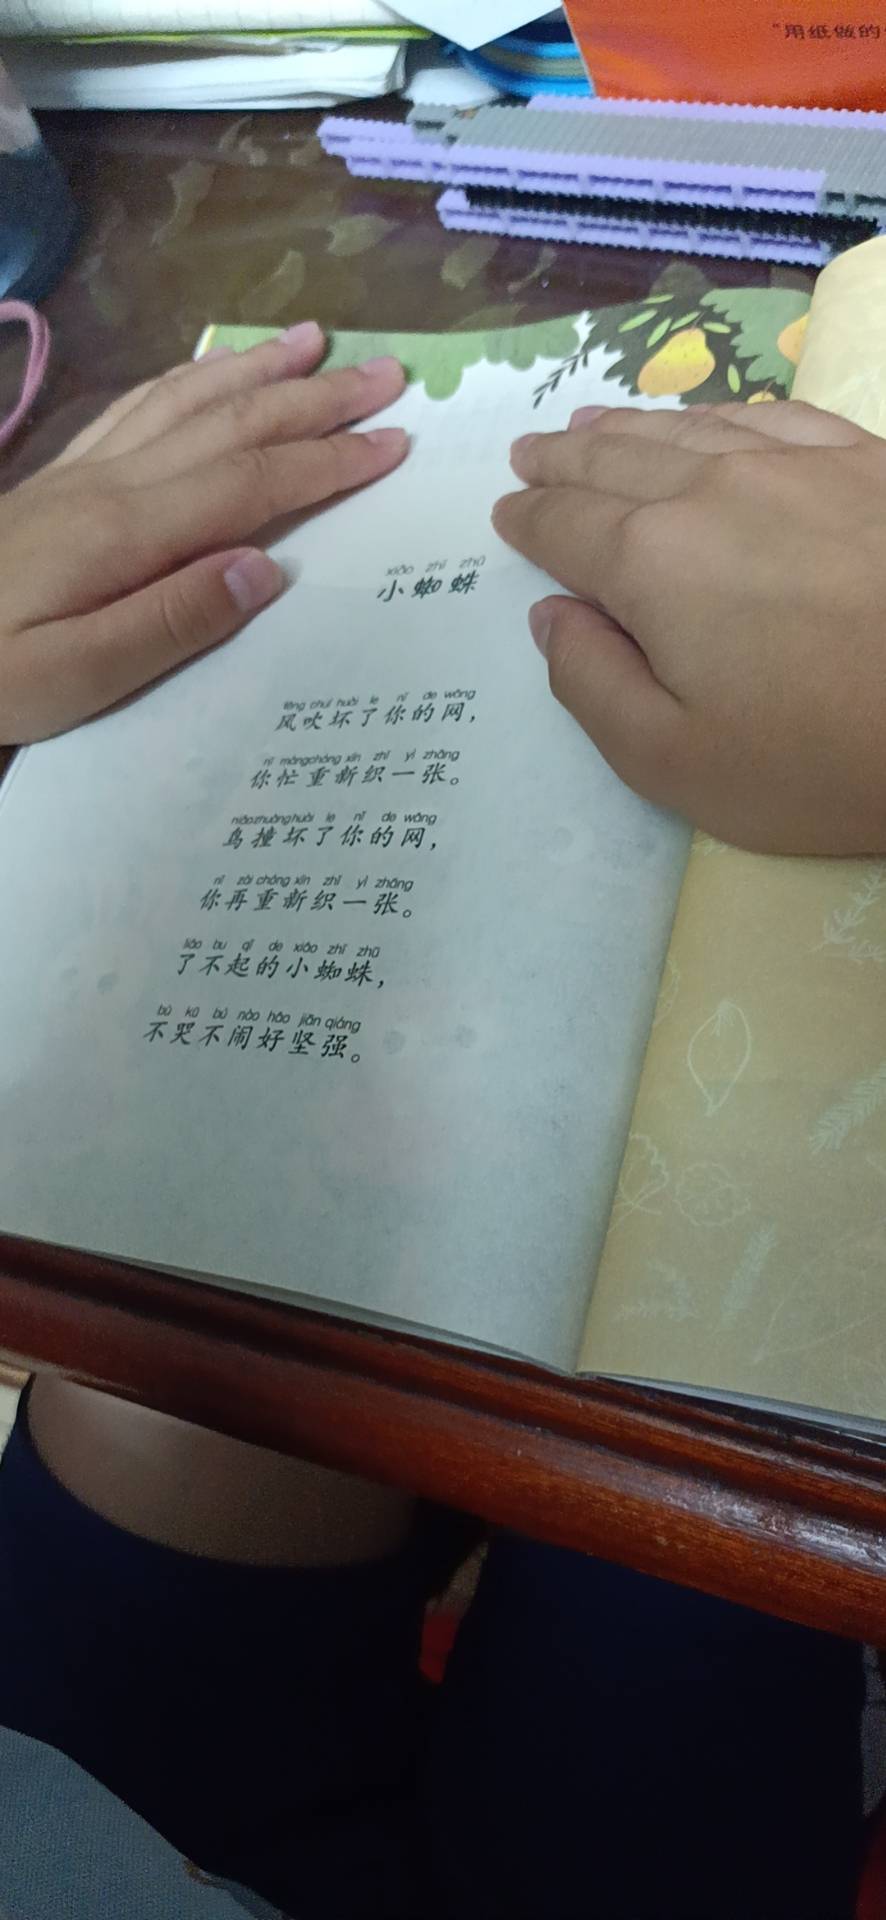 "用纸做的
xiǎo zhī zhū
小蜘蛛
fēng chuī huài le nǐ de wǎng
风吹坏了你的网，
nǐ máng chóng xīn zhī yì zhāng
你忙重新织一张。
niǎo zhuàng huài le nǐ de wǎng
鸟撞坏了你的网，
nǐ zài chóng xīn zhī yì zhāng
你再重新织一张。
liǎo bu qǐ de xiǎo zhī zhū
了不起的小蜘蛛，
bù kū bú nào hǎo jiān qiáng
不哭不闹好坚强。